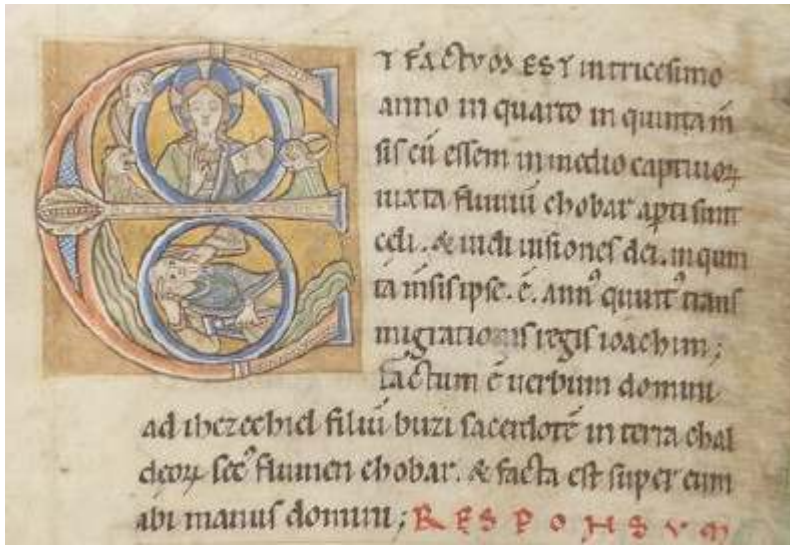 T FACTVM EST in tricesimo
anno in quarto in quinta m̄
sis cū essem in medio captiuoꝝ
iuxta fluuiū chobar aꝑti sunt
celi. & uidi uisiones dei. in quin
ta m̄sis ipse. ē. annꝰ quintꝰ trans
migrationis regis ioachim;
factum ē uerbum domini
ad ihezechiel filiū buzi sacerdotē in terra chal
deoꝝ flumen chobar. & facta est super eum
ibi manus domini; RESPONSVM